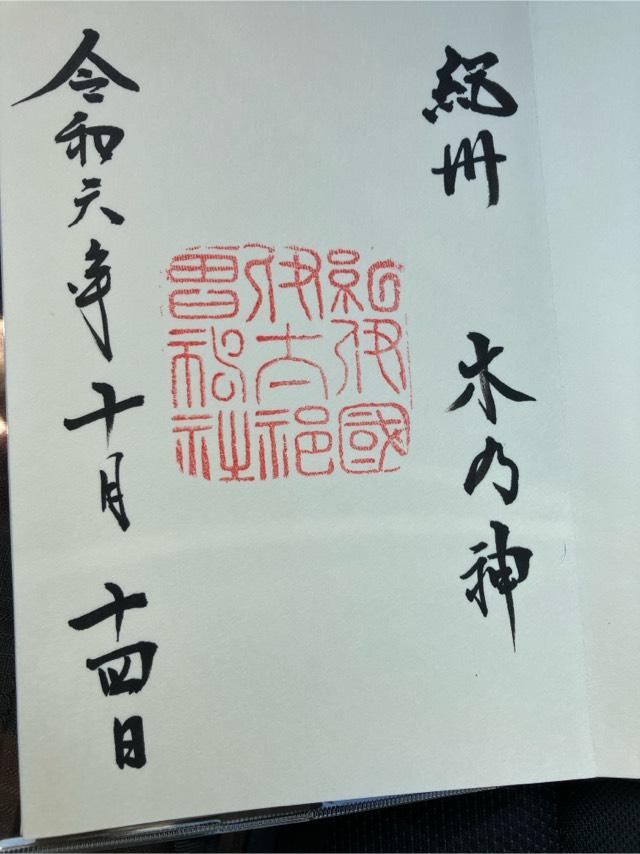 紀州 木乃神
紀伊國
伊太祁
曽神社
令和六年十月十四日